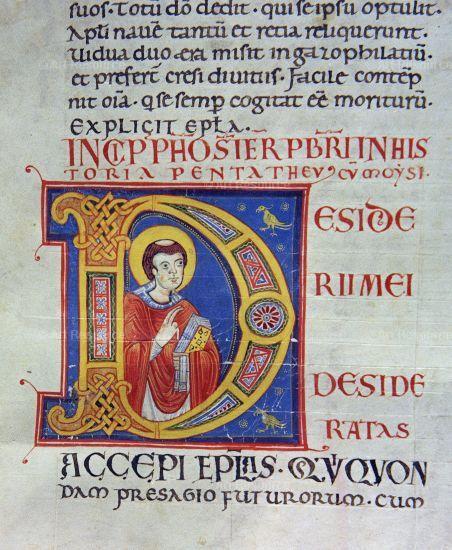 suos. Totū dō dedit. qui se ipsū optulit.
Apłi nauē tantū et retia reliquerunt.
Uidua duo æra misit in gazophilatiū.
et prefert̄ cresi diuitiis. Facile contēp
nit oīa. q̄ se semp̄ cogitat eē moriturū.
EXPLICIT EPŁA.
TORIA PENTATHEVꝯ CŪ MOYSI.
D
ESIDE
RII MEI
DESIDE
RATAS
ACCEPI EPŁAS. QUI QUON
DAM PRESAGIO FUTURORUM. CUM